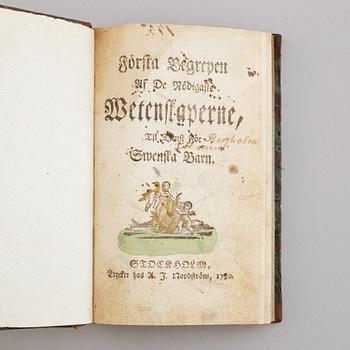 Första Begrepen
Af De Nödigaste
Wetenskaperne,
Til Tjenst för
Swenska Barn.
Bergholm
STOCKHOLM,
Tryckt hos A. J. Nordström, 1780.